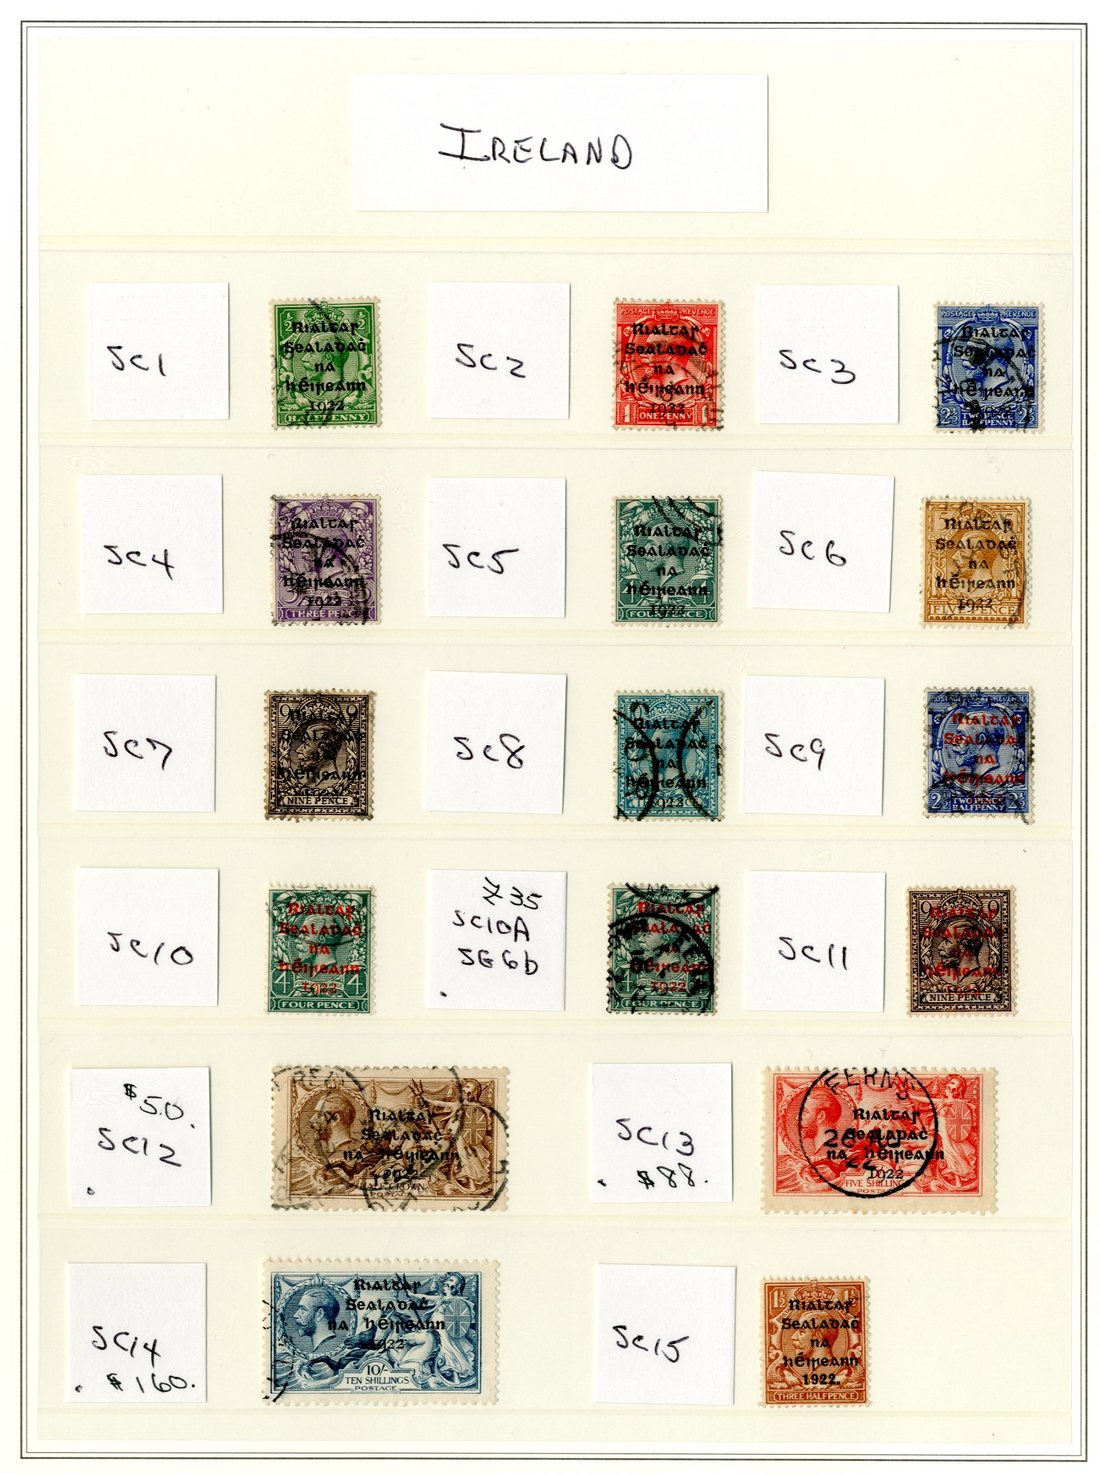 IRELAND
SC1
½ ½
Rialtas
Sealadaċ
na
hÉireann
1922
HALFPENNY
SC2
POSTAGE REVENUE
Rialtas
Sealadaċ
na
hÉireann
1922
1 ONE PENNY 1
SC3
POSTAGE REVENUE
Rialtas
Sealadaċ
na
hÉireann
1922
2½ TWO PENCE HALFPENNY 2½
SC4
Rialtas
Sealadaċ
na
hÉireann
1922
THREE PENCE
SC5
Rialtas
Sealadaċ
na
hÉireann
1922
FOUR PENCE
SC6
Rialtas
Sealadaċ
na
hÉireann
1922
FIVE PENCE
SC7
9 9
Rialtas
Sealadaċ
na
hÉireann
NINE PENCE
SC8
Rialtas
Sealadaċ
na
hÉireann
1922
SC9
Rialtas
Sealadaċ
na
hÉireann
2½ TWO PENCE HALFPENNY 2½
SC10
Rialtas
Sealadaċ
na
hÉireann
1922
4 4
FOUR PENCE
35
SC10A
SG6b
Rialtas
Sealadaċ
na
hÉireann
1922
FOUR PENCE
SC11
9 9
Rialtas
Sealadaċ
na
hÉireann
NINE PENCE
$50.
SC12
Rialtas
Sealadaċ
na hÉireann
1922
HALF CROWN
SC13
$88.
FERNS
22
Rialtas
Sealadaċ
na hÉireann
1922
FIVE SHILLINGS
POSTAGE
SC14
$160.
Rialtas
Sealadaċ
na hÉireann
1922
10/-
TEN SHILLINGS
POSTAGE
SC15
1½ 1½
Rialtas
Sealadaċ
na
hÉireann
1922.
THREE HALFPENCE